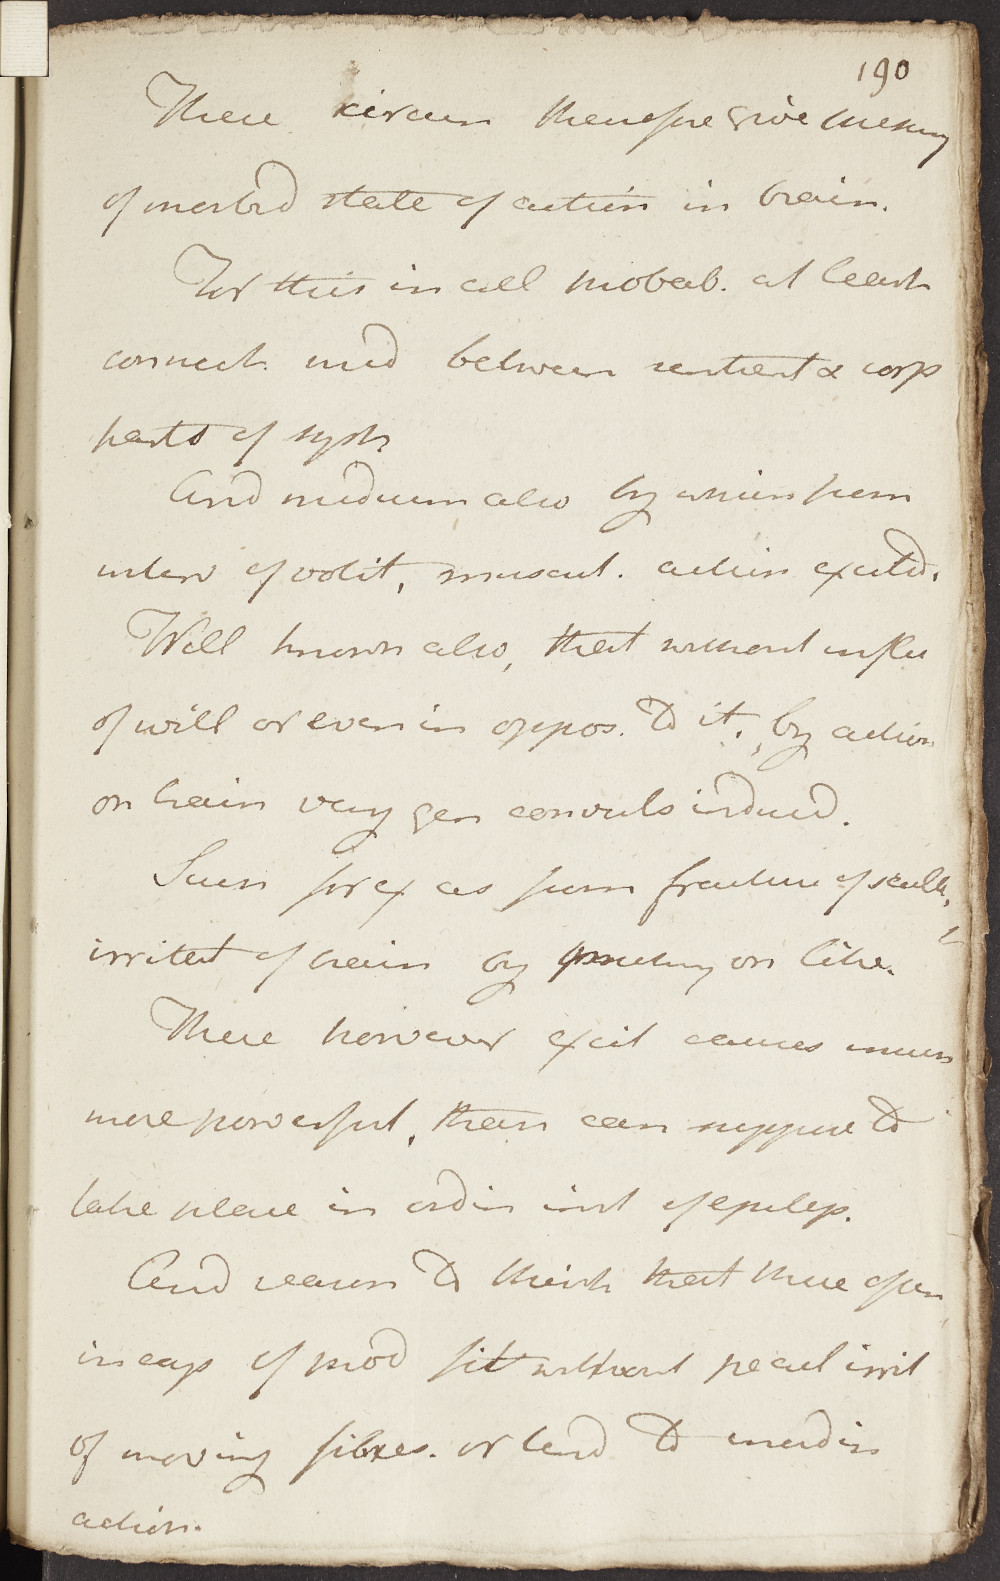 190
These circum therefore give
of morbid state of action in brain.
For this in all probab. at least
connect. med between sentient & corp
parts of syst.
And medium also by which from
influ of volit, muscul. action excitd.
Well known also, that without influ
of will or even in oppos. to it, by action
on brain very gen convuls inducd.
Such for ex as from fracture of scull,
irritat of brain by on like.
These however excit causes much
more powerful, than can suppose to
take place in ordin inst of epilep.
And reason to think that these often
incap of prod fit without pecul irrit
of moving fibres. or tend to inordin
action.